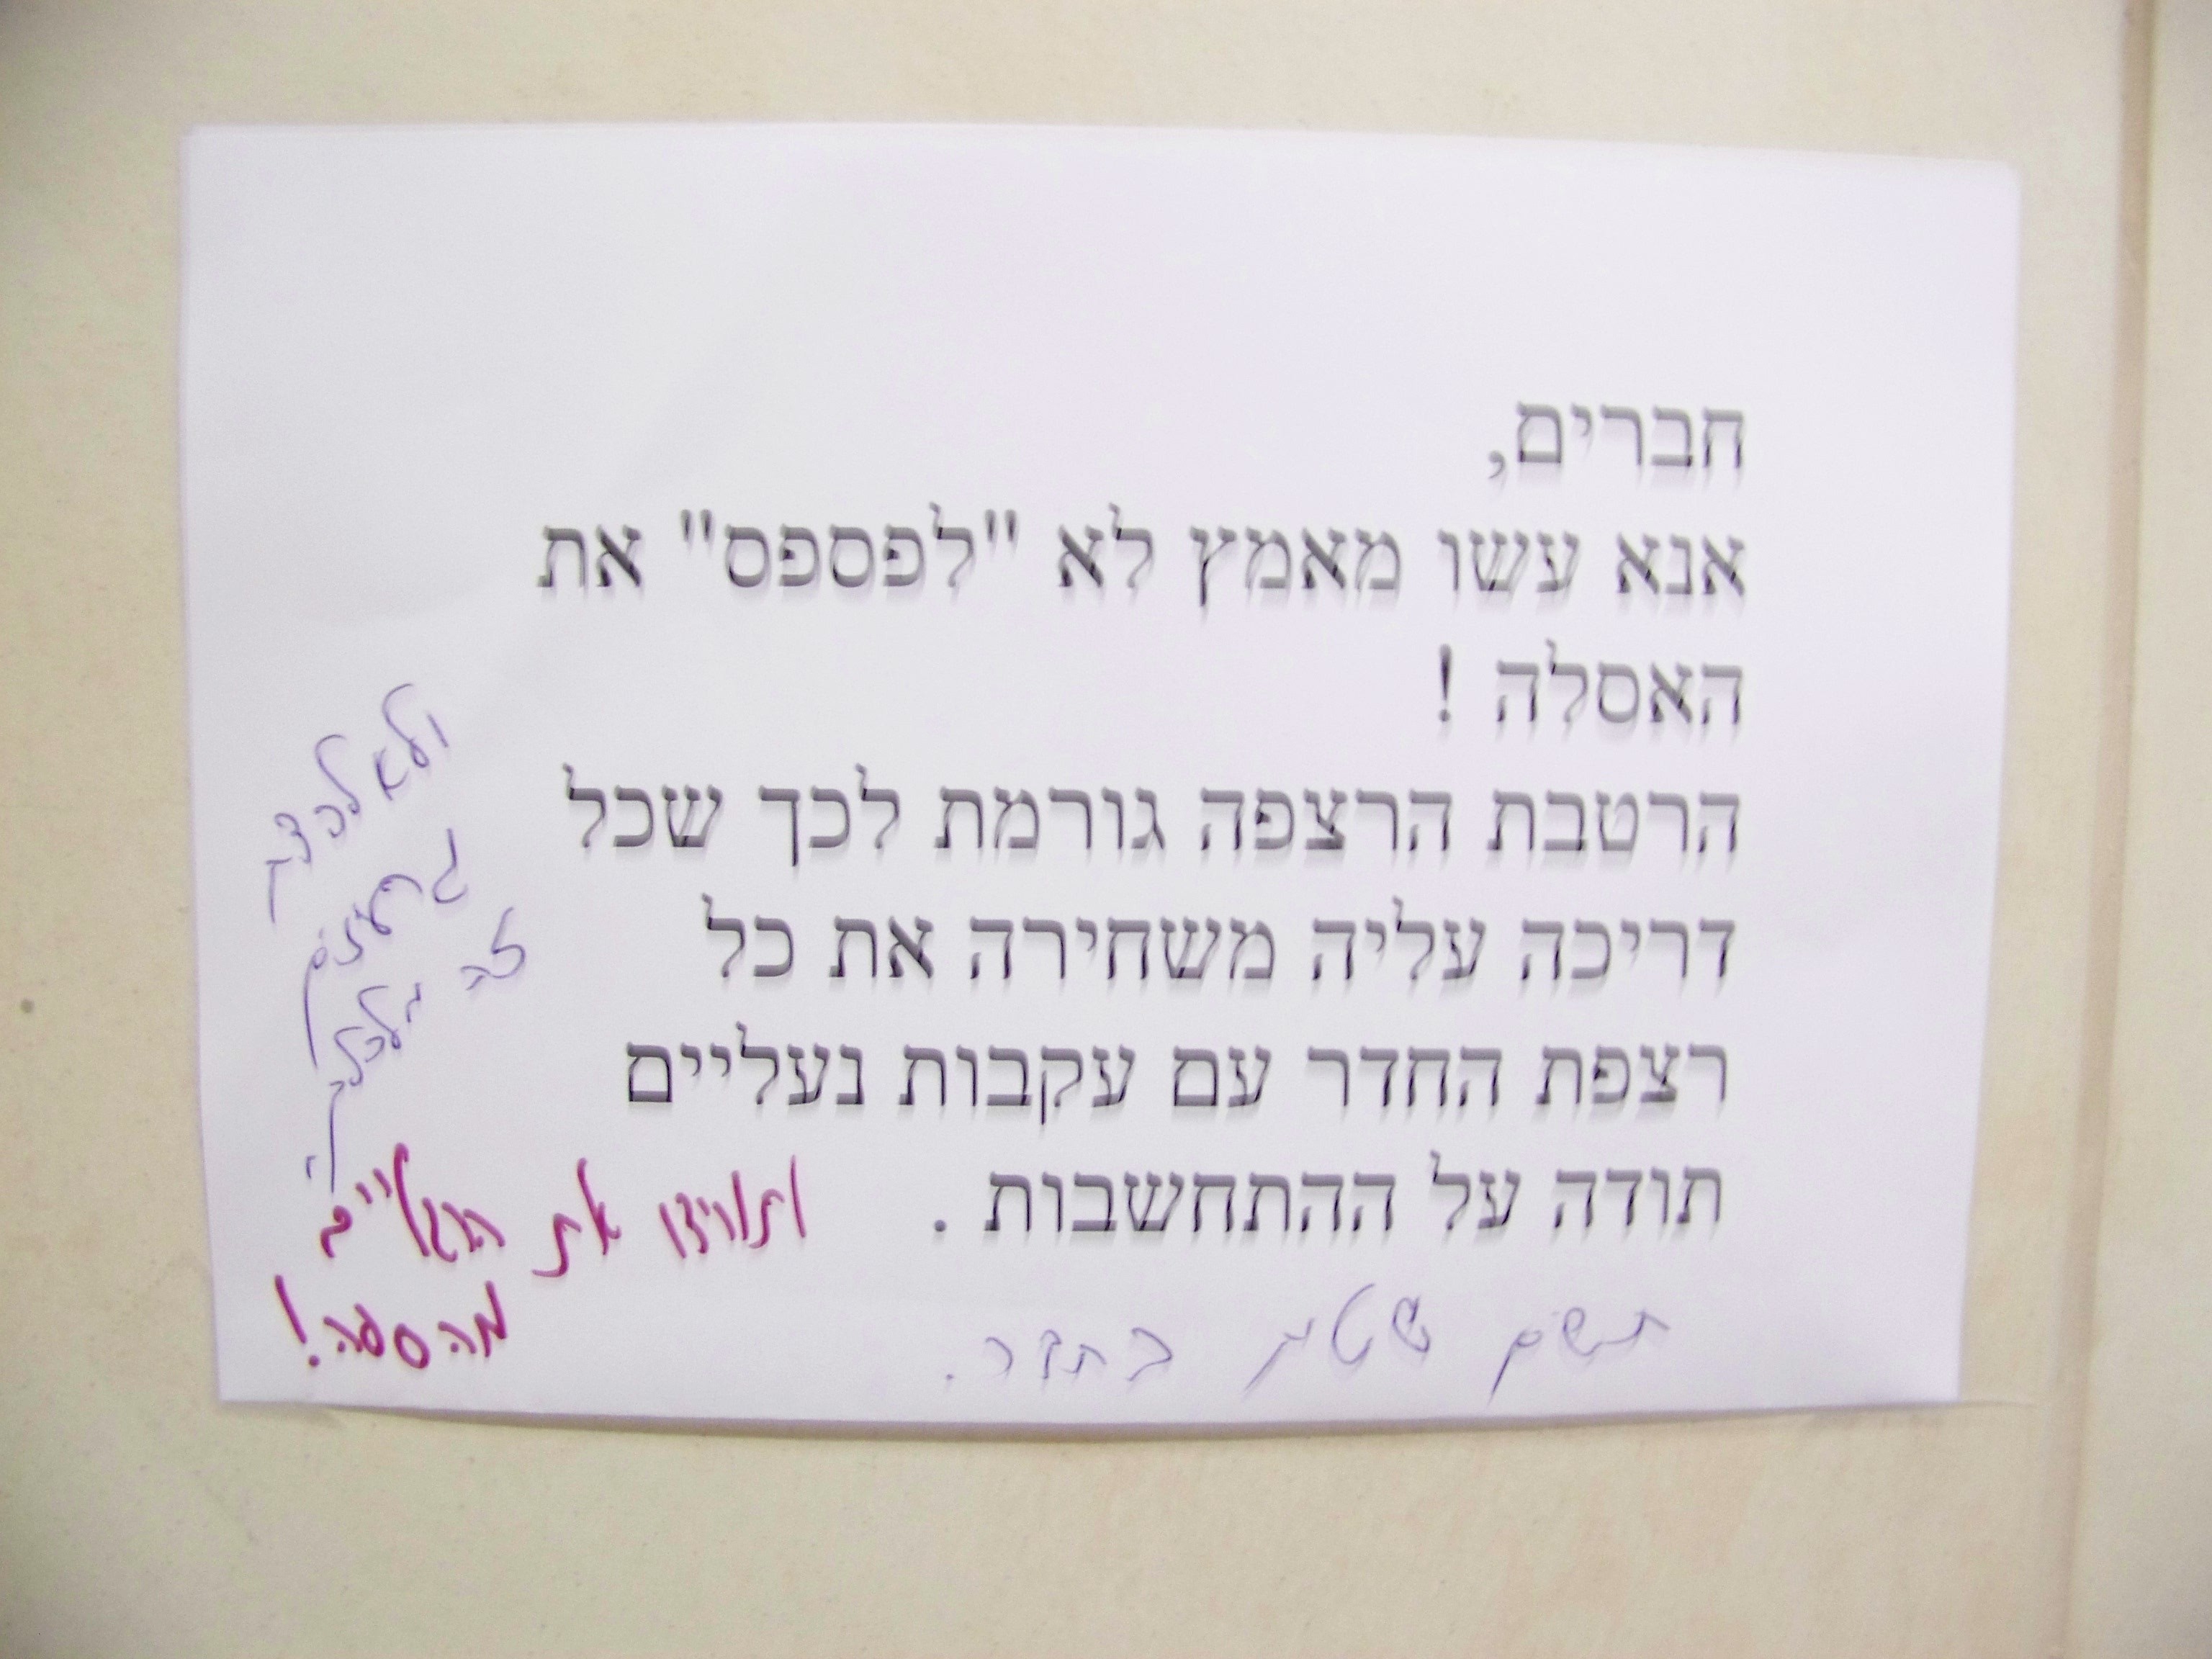 חברים,
אנא עשו מאמץ לא "לפספס" את
האסלה !
הרטבת הרצפה גורמת לכך שכל
דריכה עליה משחירה את כל
רצפת החדר עם עקבות נעליים
תודה על ההתחשבות .
ותורידו את הרגליים
מהספה!
תשים שטיח בחדר.
ולא
זה